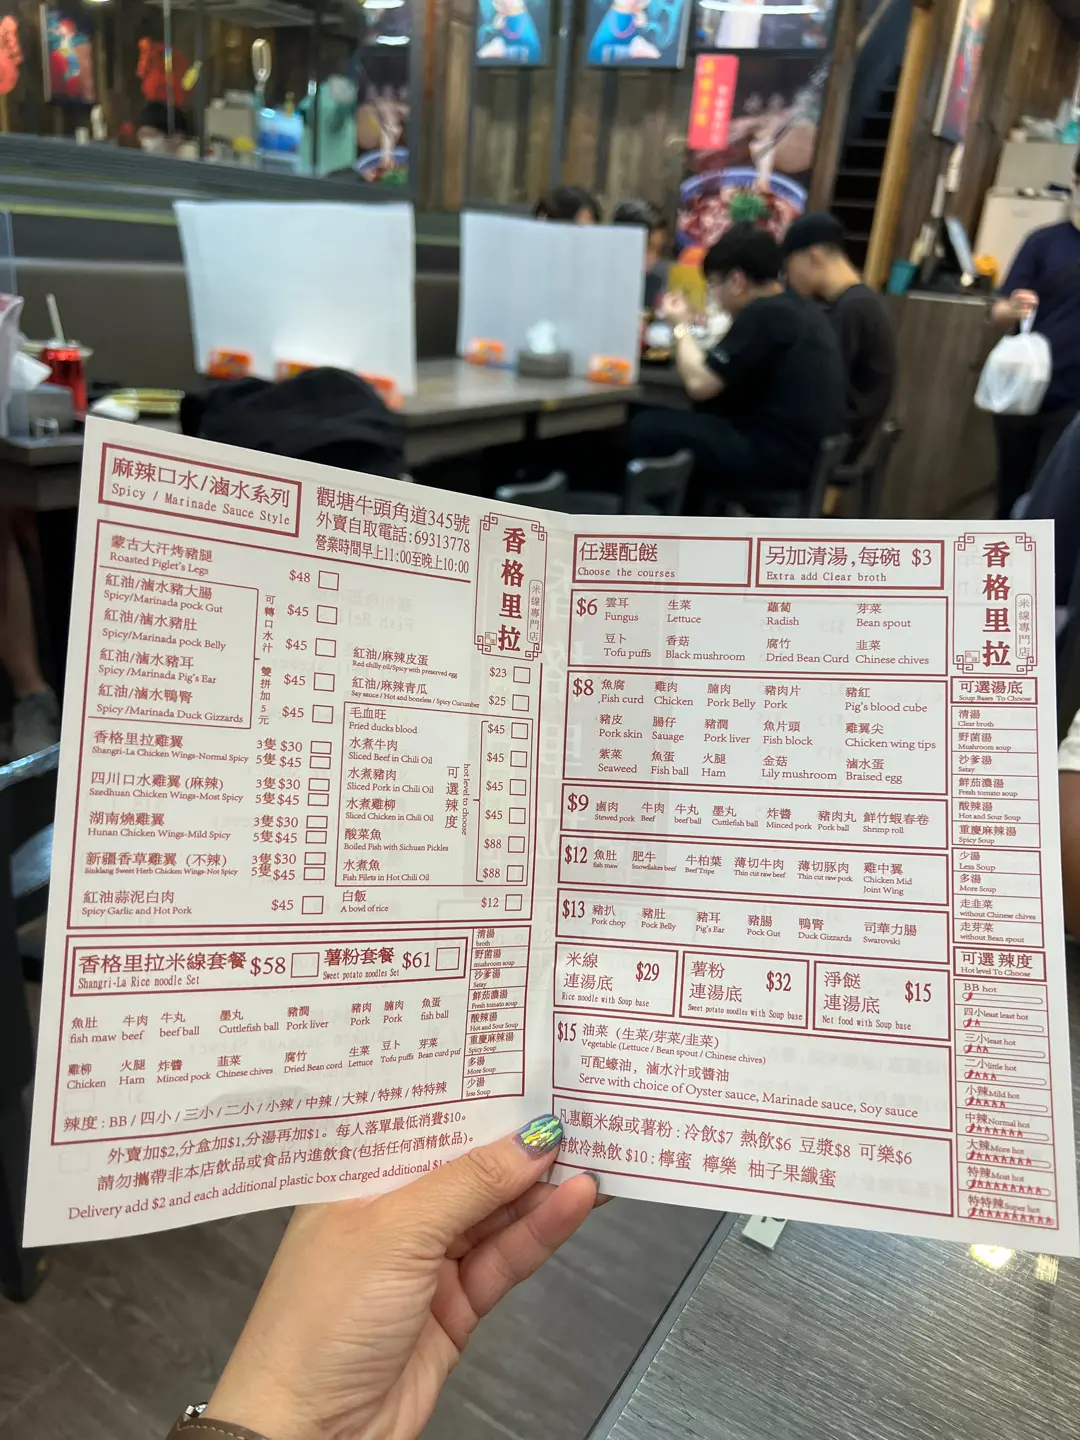 麻辣口水/滷水系列
Spicy / Marinade Sauce Style
觀塘牛頭角道345號
外賣自取電話:69313778
營業時間早上11:00至晚上10:00
香格里拉
米線專門店
蒙古大汗烤豬腿 $48
Roasted Piglet's Legs
紅油/滷水豬大腸 $45
Spicy/Marinada pock Gut
紅油/滷水豬肚 $45
Spicy/Marinada pock Belly
紅油/滷水豬耳 $45
Spicy /Marinada Pig's Ear
紅油/滷水鴨腎 $45
Spicy /Marinada Duck Gizzards
可轉口水汁
雙拼加5元
香格里拉雞翼 3隻$30
Shangri-La Chicken Wings-Normal Spicy 5隻$45
四川口水雞翼 (麻辣) 3隻$30
Szedhuan Chicken Wings-Most Spicy 5隻$45
湖南燒雞翼 3隻$30
Hunan Chicken Wings-Mild Spicy 5隻$45
新疆香草雞翼 (不辣) 3隻$30
Sinklang Sweet Herb Chicken Wings-Not Spicy 5隻$45
紅油蒜泥白肉 $45
Spicy Garlic and Hot Pork
紅油/麻辣皮蛋 $23
Red chilly oil/Spicy with preserved egg
紅油/麻辣青瓜 $25
Say sauce / Hot and boneless / Spicy Cucumber
毛血旺 $45
Fried ducks blood
水煮牛肉 $45
Sliced Beef in Chili Oil
水煮豬肉 $45
Sliced Pork in Chili Oil
水煮雞柳 $45
Sliced Chicken in Chili Oil
酸菜魚 $88
Boiled Fish with Sichuan Pickles
水煮魚 $88
Fish Filets in Hot Chili Oil
可選辣度
hot level to choose
白飯 $12
A bowl of rice
香格里拉米線套餐 $58
Shangri-La Rice noodle Set
薯粉套餐 $61
Sweet potato noodles Set
魚肚 牛肉 牛丸 墨丸 豬膶 豬肉 腩肉 魚蛋
fish maw beef beef ball Cuttlefish ball Pork liver Pork Pork fish ball
雞柳 火腿 炸醬 韮菜 腐竹 生菜 豆卜 芽菜
Chicken Ham Minced pock Chinese chives Dried Bean cord Lettuce Tofu puffs Bean curd puf
辣度 : BB / 四小 / 三小 / 二小 / 小辣 / 中辣 / 大辣 / 特辣 / 特特辣
清湯
broth
野菌湯
mushroom soup
沙爹湯
Satay
鮮茄濃湯
Fresh tomato soup
酸辣湯
Hot and Sour Soup
重慶麻辣湯
Spicy Soup
多湯
More Soup
少湯
less Soup
外賣加$2,分盒加$1,分湯再加$1。每人落單最低消費$10。
請勿攜帶非本店飲品或食品內進飲食(包括任何酒精飲品)。
Delivery add $2 and each additional plastic box charged additional
任選配餸
Choose the courses
另加清湯,每碗 $3
Extra add Clear broth
香格里拉
米線專門店
$6 雲耳 生菜 蘿蔔 芽菜
Fungus Lettuce Radish Bean spout
豆卜 香菇 腐竹 韮菜
Tofu puffs Black mushroom Dried Bean Curd Chinese chives
$8 魚腐 雞肉 腩肉 豬肉片 豬紅
Fish curd Chicken Pork Belly Pork Pig's blood cube
豬皮 腸仔 豬膶 魚片頭 雞翼尖
Pork skin Sauage Pork liver Fish block Chicken wing tips
紫菜 魚蛋 火腿 金菇 滷水蛋
Seaweed Fish ball Ham Lily mushroom Braised egg
$9 鹵肉 牛肉 牛丸 墨丸 炸醬 豬肉丸 鮮竹蝦春卷
Stewed pork Beef beef ball Cuttlefish ball Minced pork Pork ball Shrimp roll
$12 魚肚 肥牛 牛柏葉 薄切牛肉 薄切豚肉 雞中翼
fish maw Snowflakes beef Beef Tripe Thin cut raw beef Thin cut raw pork Chicken Mid Joint Wing
$13 豬扒 豬肚 豬耳 豬腸 鴨腎 司華力腸
Pork chop Pock Belly Pig's Ear Pock Gut Duck Gizzards Swarovski
米線
連湯底 $29
Rice noodle with Soup base
薯粉
連湯底 $32
Sweet potato noodles with Soup base
淨餸
連湯底 $15
Net food with Soup base
$15 油菜 (生菜/芽菜/韮菜)
Vegetable (Lettuce / Bean spout / Chinese chives)
可配蠔油, 滷水汁或醬油
Serve with choice of Oyster sauce, Marinade sauce, Soy sauce
凡惠顧米線或薯粉 : 冷飲$7 熱飲$6 豆漿$8 可樂$6
特飲冷熱飲 $10 : 檸蜜 檸樂 柚子果纖蜜
可選湯底
Soup Bases To Choose
清湯
Clear broth
野菌湯
Mushroom soup
沙爹湯
Satay
鮮茄濃湯
Fresh tomato soup
酸辣湯
Hot and Sour Soup
重慶麻辣湯
Spicy Soup
少湯
Less Soup
多湯
More Soup
走韭菜
without Chinese chives
走芽菜
without Bean spout
可選 辣度
Hot level To Choose
BB hot
四小least least hot
三小least hot
二小little hot
小辣Mild hot
中辣Normal hot
大辣More hot
特辣Most hot
特特辣Super hot